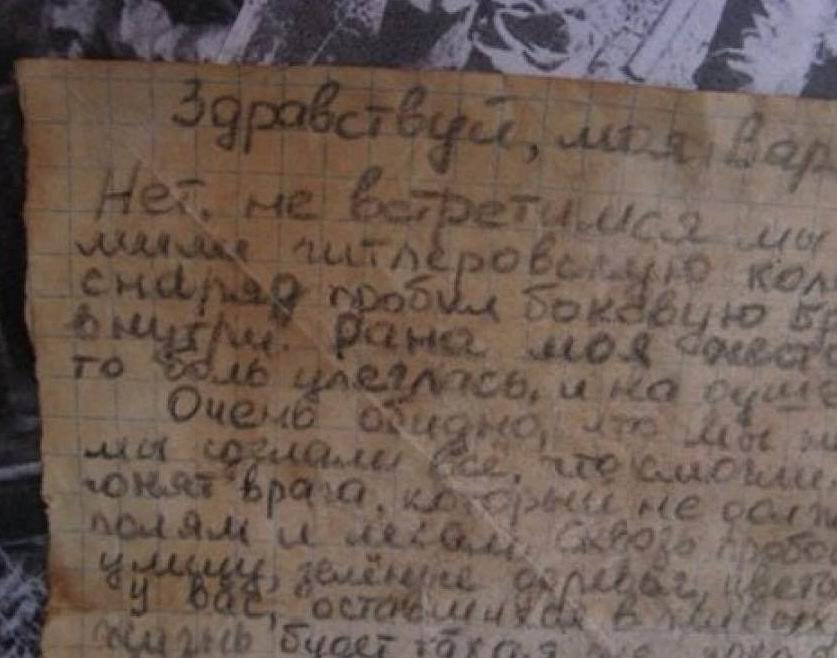 Здравствуй, моя Вар
Нет, не встретимся мы
мили гитлеровскую кол
снаряд пробил боковую бр
внутри. Рана моя жест
то боль улеглась, и на душе
Очень обидно, что мы н
мы сделали все, что смогли.
гонят врага, который не долж
полям и лесам. Сквозь пробо
улицу, зелёные деревья, цвет
у вас, оставшихся в живых
жизнь будет такая же